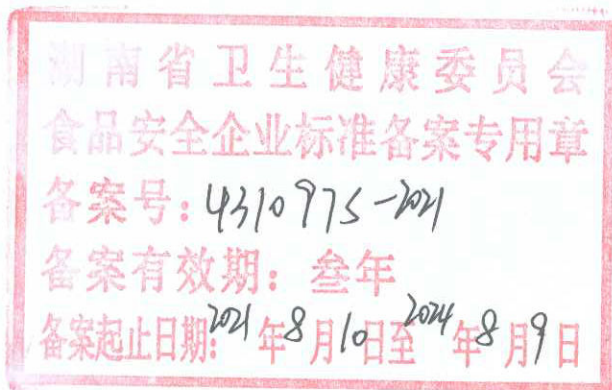 湖南省卫生健康委员会
食品安全企业标准备案专用章
备案号：4310975-2021
备案有效期：叁年
备案起止日期：2021年8月10日至2024年8月9日